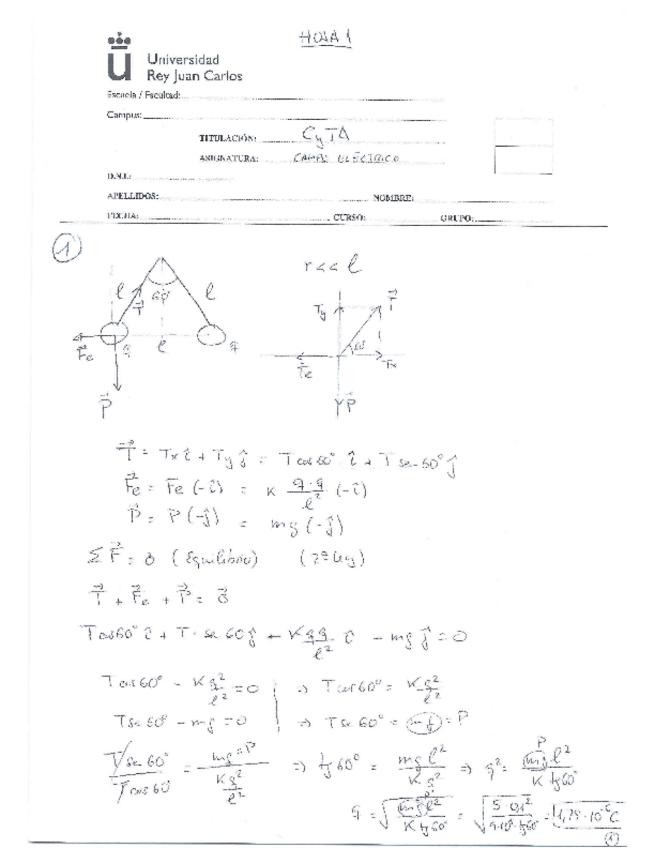 HOJA 1
Universidad
Rey Juan Carlos
Escuela / Facultad:
Campus:
TITULACIÓN: CyTA
ASIGNATURA: CAMPO ELÉCTRICO
D.N.I.:
APELLIDOS: NOMBRE:
FECHA: CURSO: GRUPO:
①
r << l
l l
60º
T⃗
F⃗e q l q
P⃗
Ty T⃗
F⃗e Tx
P⃗
T⃗ = Tx î + Ty ĵ = T cos 60º î + T sen 60º ĵ
F⃗e = Fe (-î) = K q·q/l² (-î)
P⃗ = P (-ĵ) = mg (-ĵ)
Σ F⃗ = 0 (Equilibrio) (2ª Ley)
T⃗ + F⃗e + P⃗ = 0⃗
T cos 60º î + T · sen 60 ĵ - K qq/l² î - mg ĵ = 0
T cos 60º - K q²/l² = 0 ⇒ T cos 60º = K q²/l²
T sen 60º - mg = 0 ⇒ T sen 60º = mg = P
T sen 60º / T cos 60 = mg = P / K q²/l² ⇒ tg 60º = mg l² / K q² ⇒ q² = P mg l² / K tg 60º
q = √(mg l² / K tg 60º) = √(5 · 0,1² / 9·10⁹ · tg 60) = 1,79 · 10⁻⁶ C
①